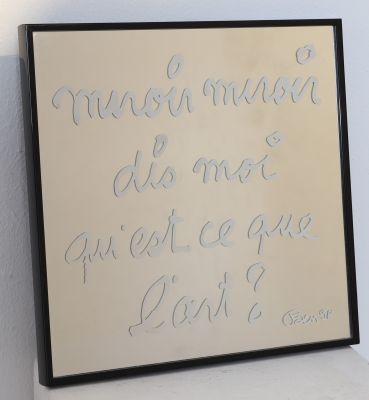 miroir miroir
dis moi
qu'est ce que
l'art ?